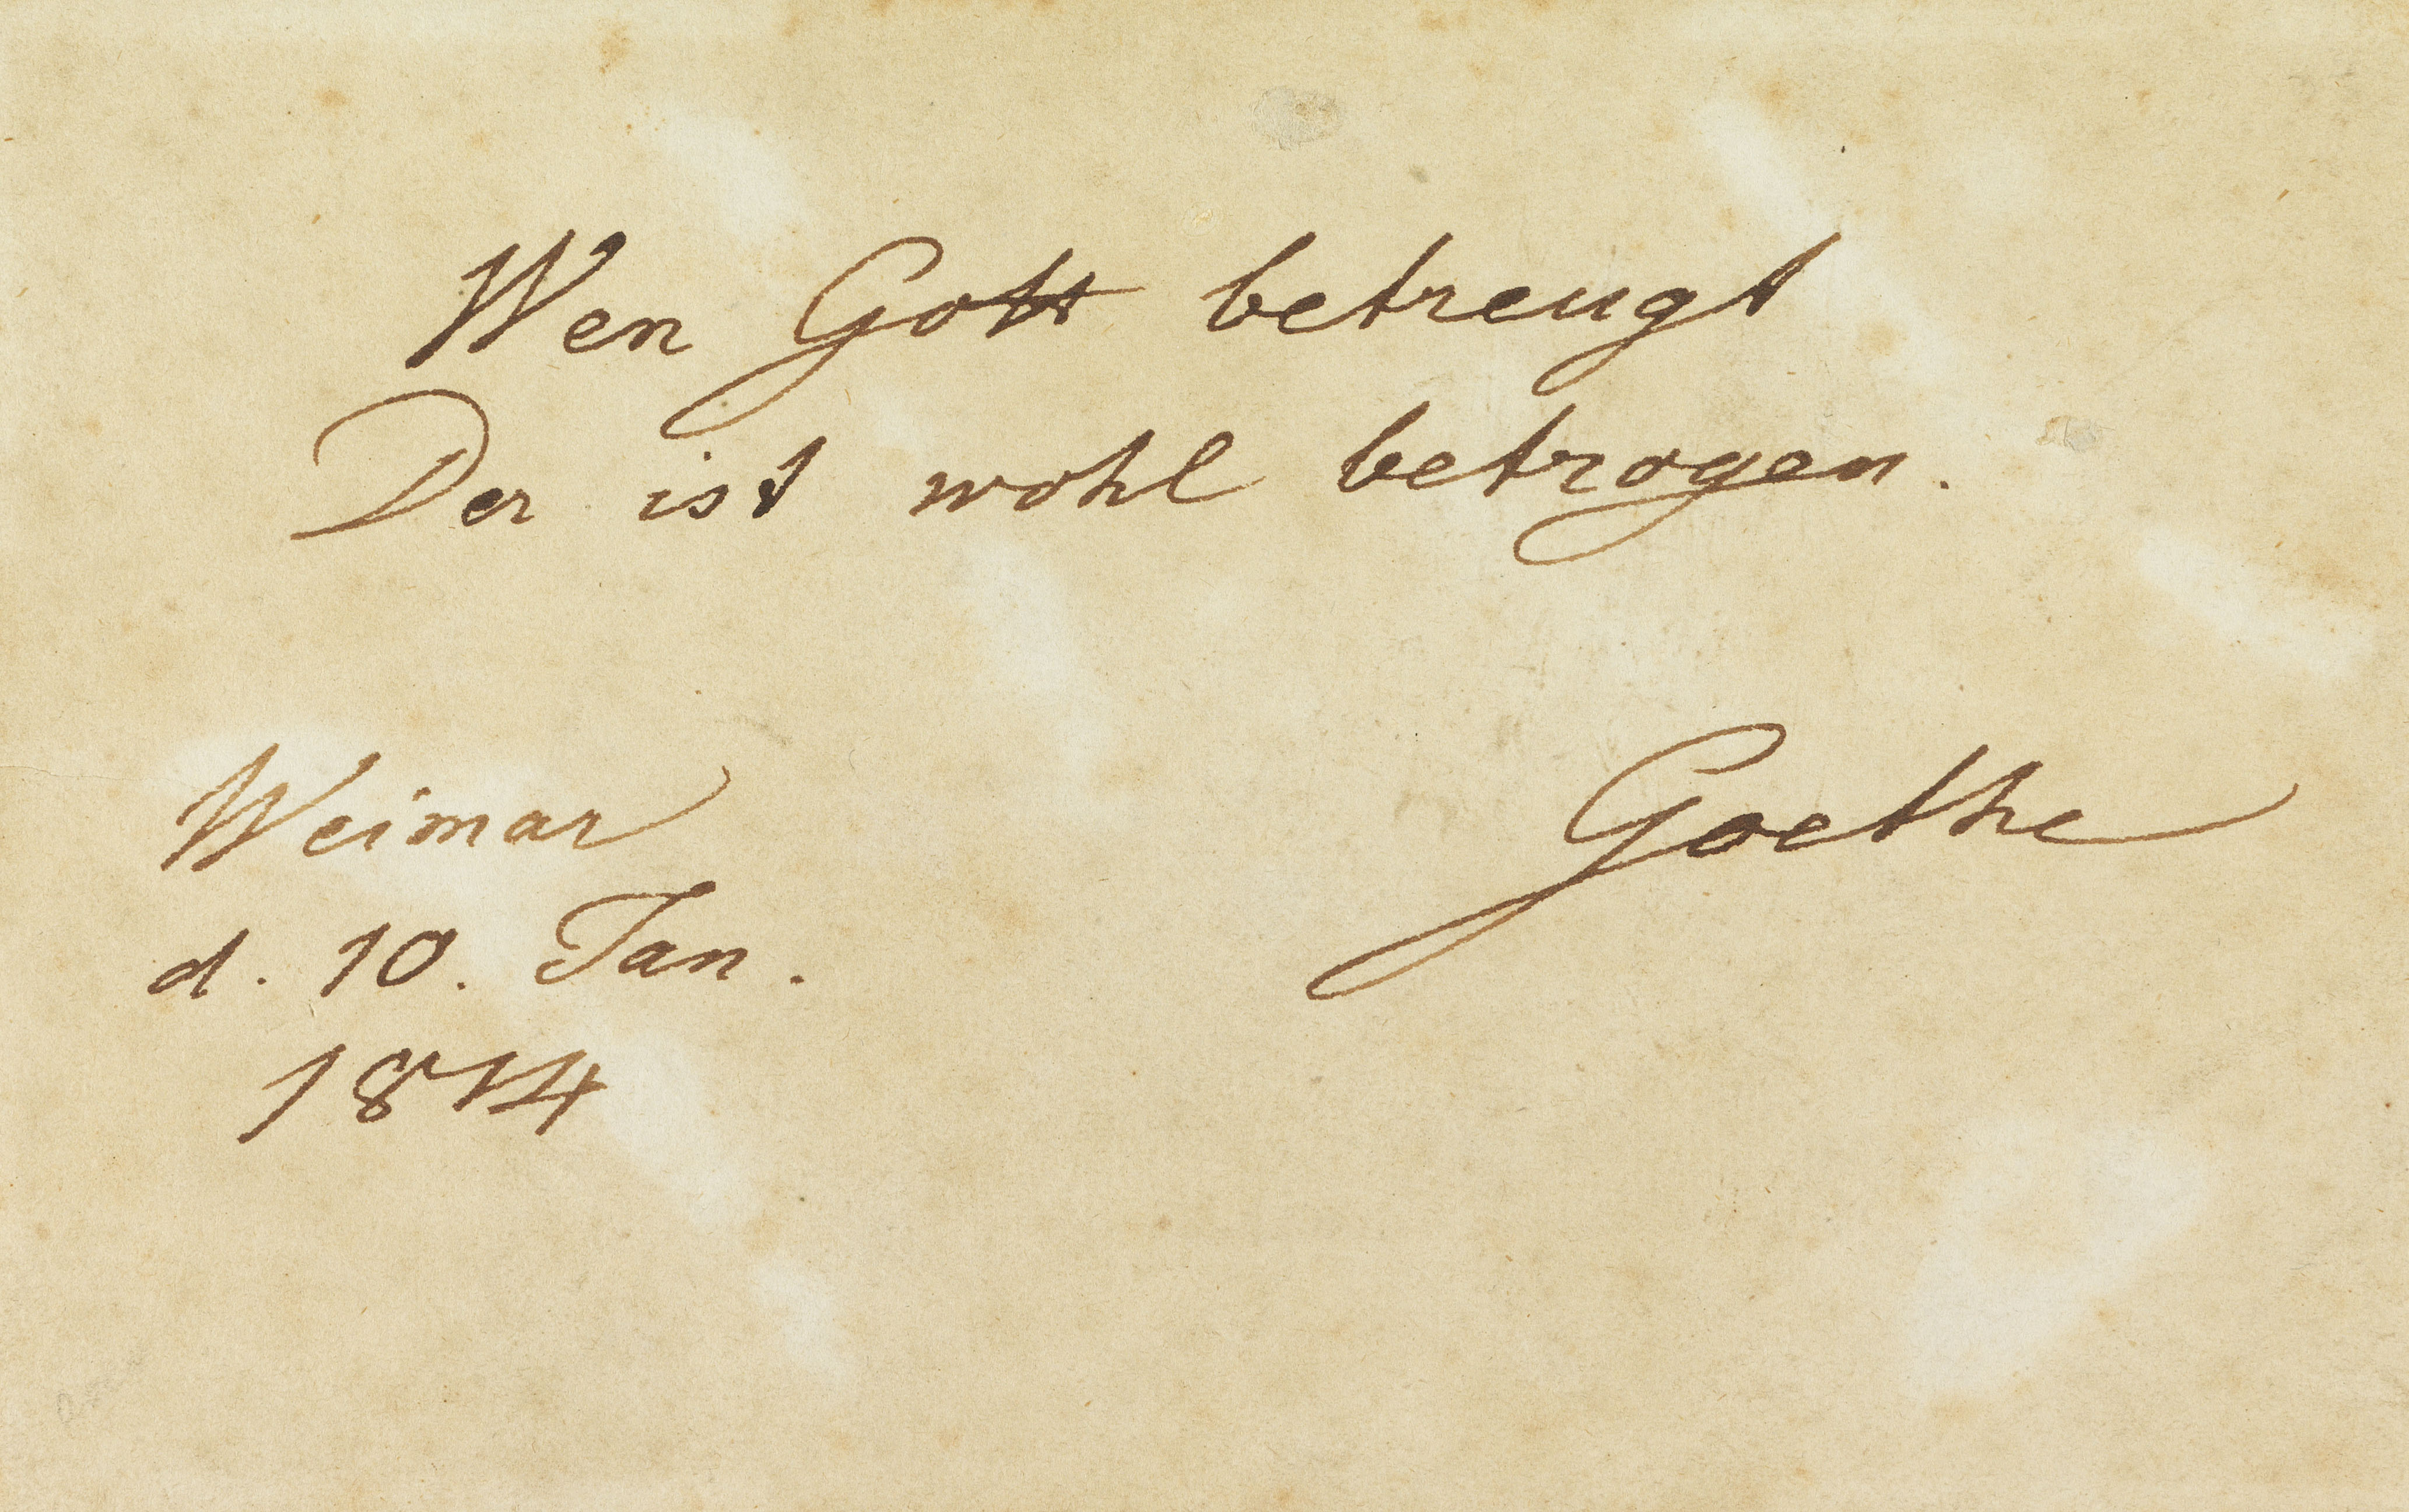 Wen Gott betreugt
Der ist wohl betrogen.
Weimar
d. 10. Jan.
1814
Goethe